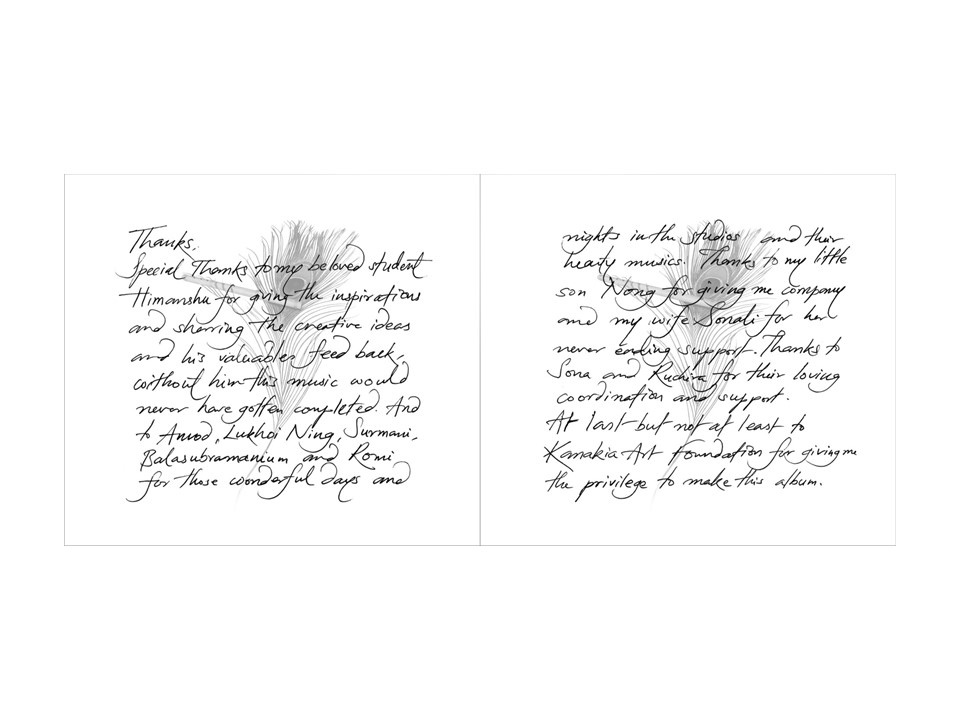 Thanks,
Special Thanks to my beloved student
Himanshu for giving the inspirations
and sharring the creative ideas
and his valuables feed back,
without him this music would
never have gotten completed. And
to Amod, Lukhoi Ning, Surmani,
Balasubramanium and Romi
for those wonderful days and
nights in the studios and their
hearty musics. Thanks to my little
son Nong for giving me company
and my wife Sonali for her
never ending support. Thanks to
Sona and Ruchira for their loving
coordination and support.
At last but not at least to
Kanakia Art Foundation for giving me
the privilege to make this album.